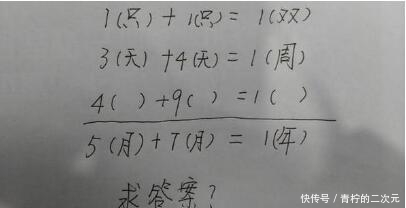 1(只) + 1(只) = 1(双)
3(天) + 4(天) = 1(周)
4( ) + 9( ) = 1( )
5(月) + 7(月) = 1(年)
求答案?
快传号 / 青柠的二次元